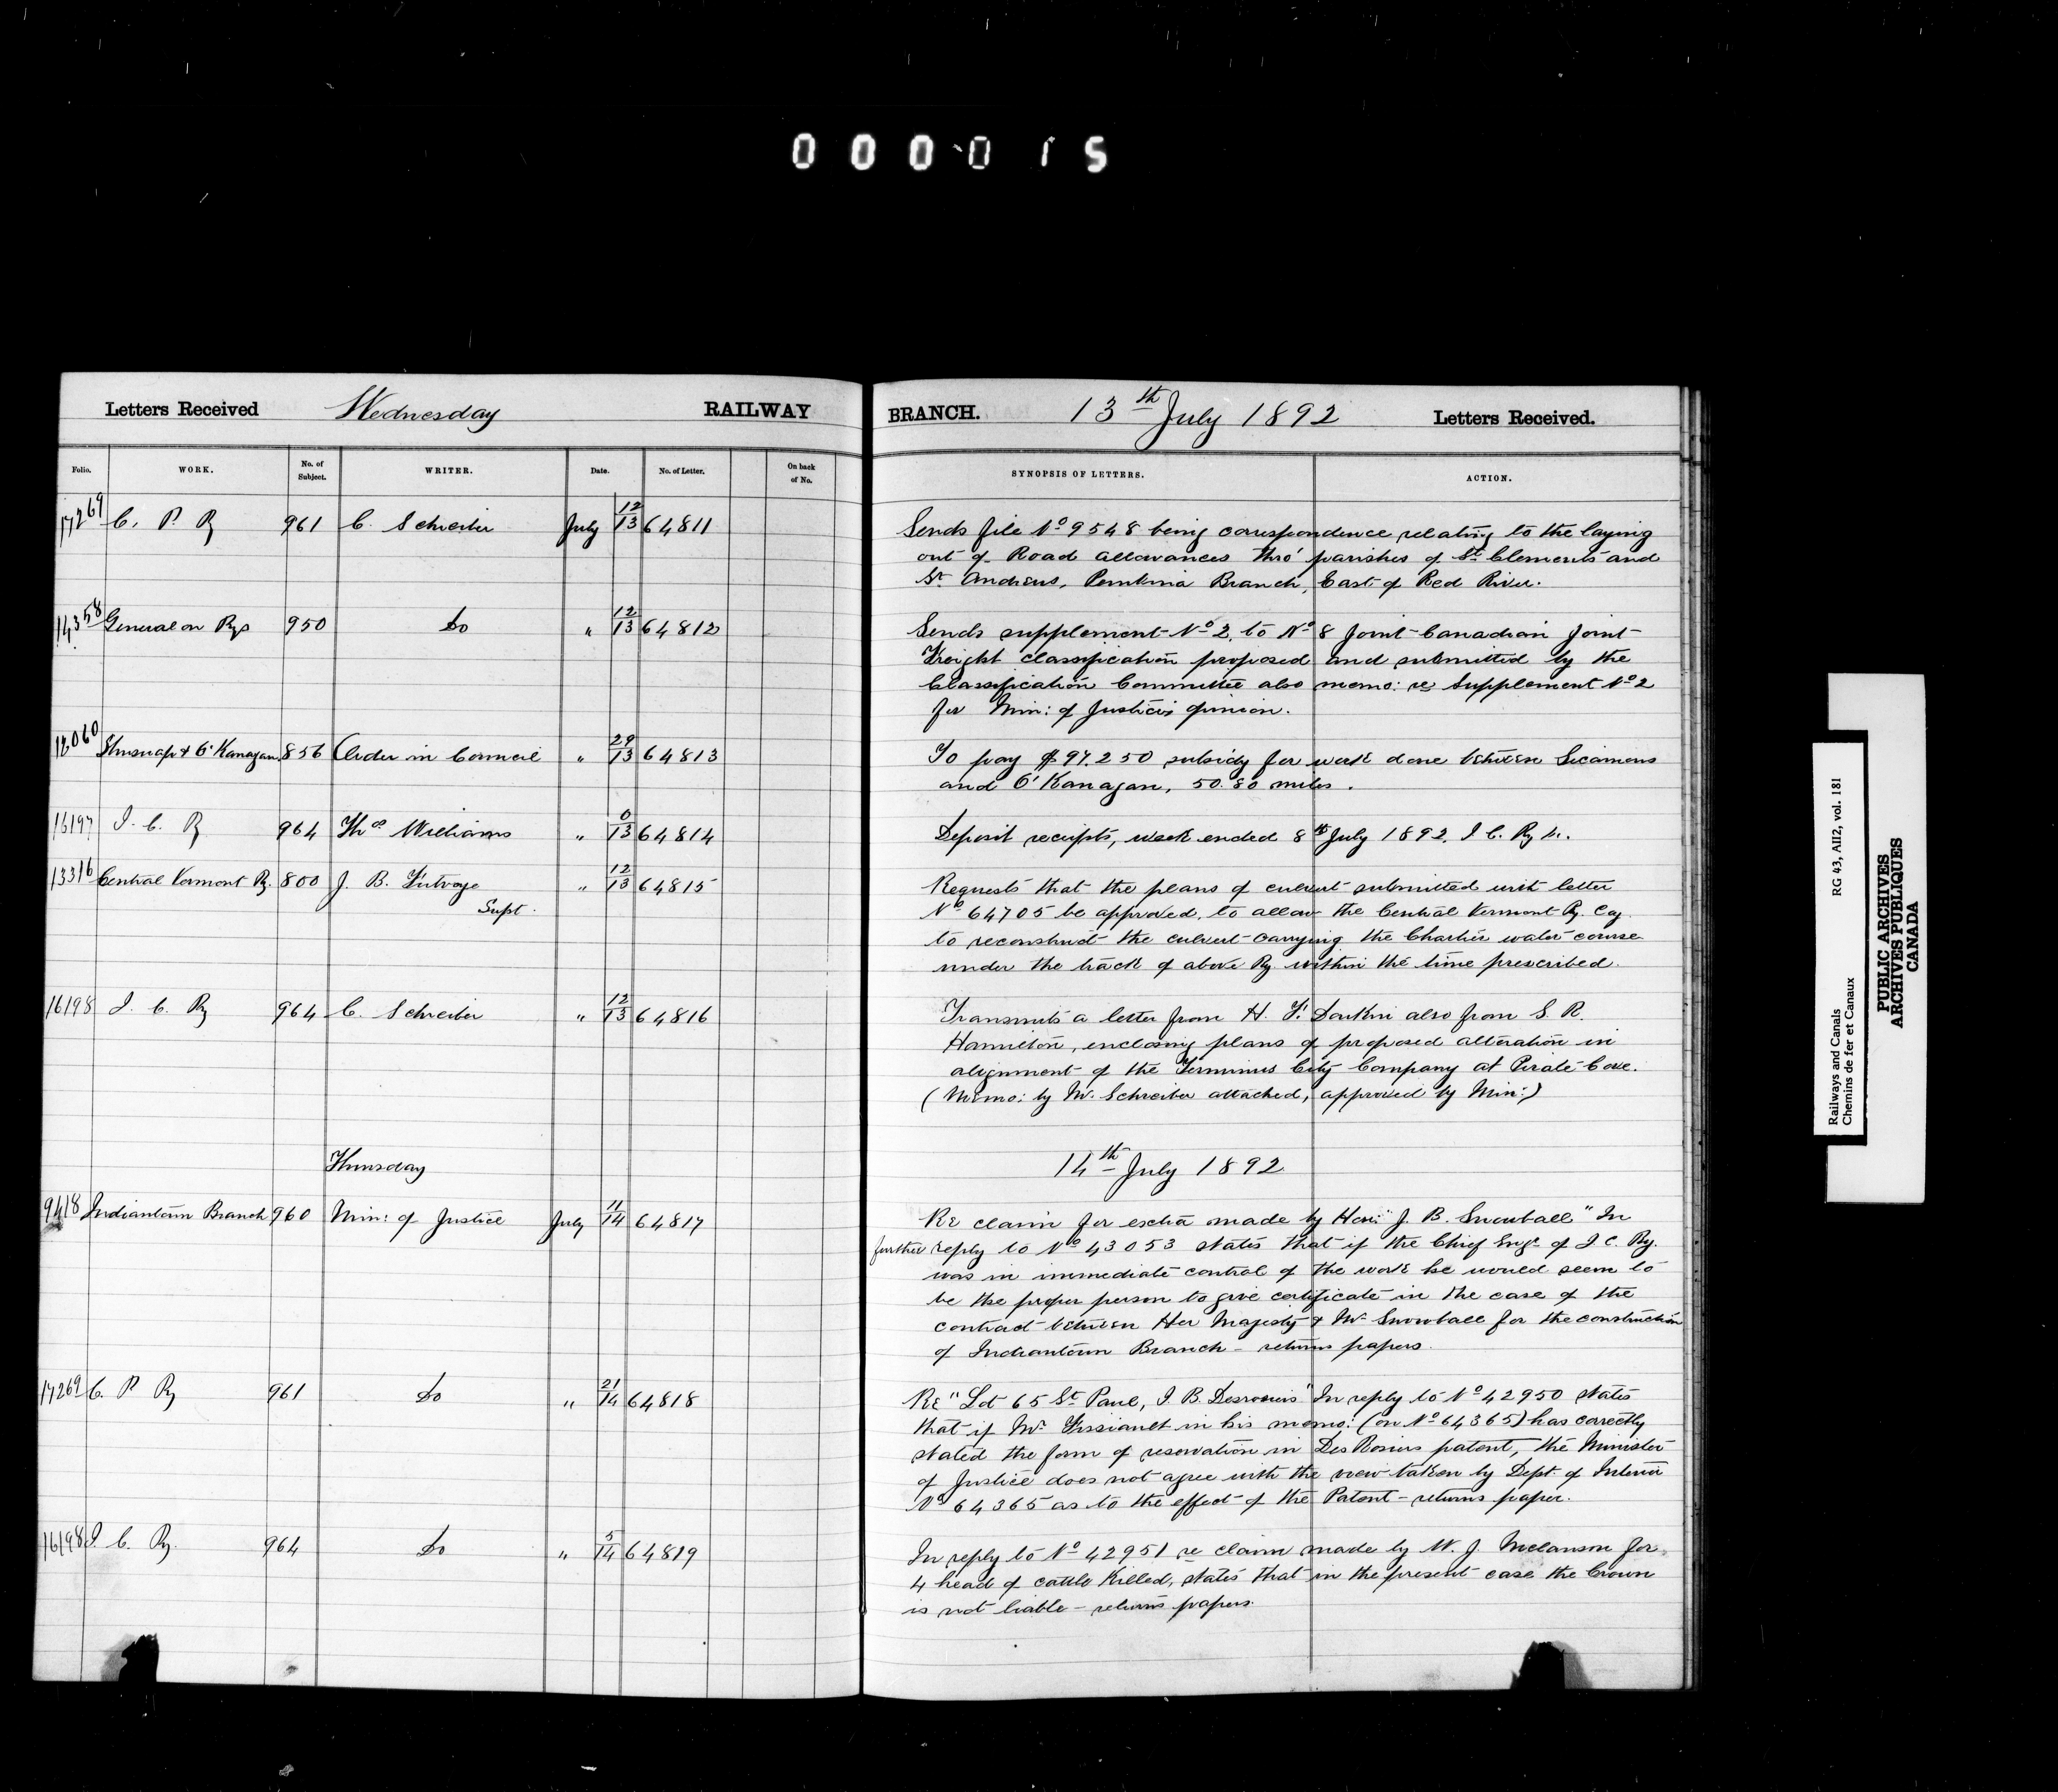 000015
Letters Received Wednesday RAILWAY BRANCH. 13th July 1892 Letters Received.
Folio. WORK. No. of Subject. WRITER. Date. No. of Letter. On back of No. SYNOPSIS OF LETTERS. ACTION.
17269 C. P. Ry 961 C. Schreiber July 12/13 64811
Sends file No 9548 being correspondence relating to the laying
out of Road allowances thro' parishes of St Clements and
St. Andrews, Pembina Branch, East of Red River.
14358 General on Rys 950 Do " 12/13 64812
Sends supplement No 2, to No 8 Joint Canadian Joint
Freight classification proposed and submitted by the
Classification Committee also memo: re Supplement No 2
for Min: of Justice's opinion.
Shuswap & O'Kanagan 856 Order in Council " 29/13 64813
To pay $97.250 subsidy for work done between Sicamous
and O'Kanagan, 50.80 miles.
16197 I. C. Ry 964 Thos Williams " 8/13 64814
Deposit receipts, week ended 8th July 1892. I C. Ry
13316 Central Vermont Ry. 800 J. B. Futvoye " 12/13 64815
Supt.
Requests that the plans of culvert submitted with letter
No 64705 be approved, to allow the Central Vermont Ry. Coy
to reconstruct the culvert carrying the Charlier water course
under the track of above Ry. within the time prescribed.
16198 I. C. Ry 964 C. Schreiber " 12/13 64816
Transmits a letter from H. F. also from S. R.
Hamilton, enclosing plans of proposed alteration in
alignment of the Terminus City Company at Pirate Cove.
(Memo: by Mr. Schreiber attached, approved by Min:)
Thursday 14th July 1892
9418 Indiantown Branch 960 Min: of Justice July 11/14 64817
Re claim for extra made by Hon: "J. B. Snowball" In
further reply to No 43053 states that if the Chief Engr of I C. Ry.
was in immediate control of the work he would seem to
be the proper person to give certificate in the case of the
contract between Her Majesty & Mr Snowball for the construction
of Indiantown Branch - returns papers.
17269 C. P Ry 961 Do " 21/14 64818
Re "Lot 65 St. Paul, J. B. Desrosiers" In reply to No 42950 states
that if Mr. Fissiault in his memo: (on No 64365) has correctly
stated the form of reservation in DesRosiers patent, the Minister
of Justice does not agree with the view taken by Dept. of Interior
No 64365 as to the effect of the Patent - returns paper.
16198 I. C. Ry. 964 Do " 5/14 64819
In reply to No 42951 re claim made by W. J. Melanson for
4 head of cattle killed, states that in the present case the Crown
is not liable - returns papers.
Railways and Canals RG 43, AII2, vol. 181
Chemins de fer et Canaux
PUBLIC ARCHIVES
ARCHIVES PUBLIQUES
CANADA